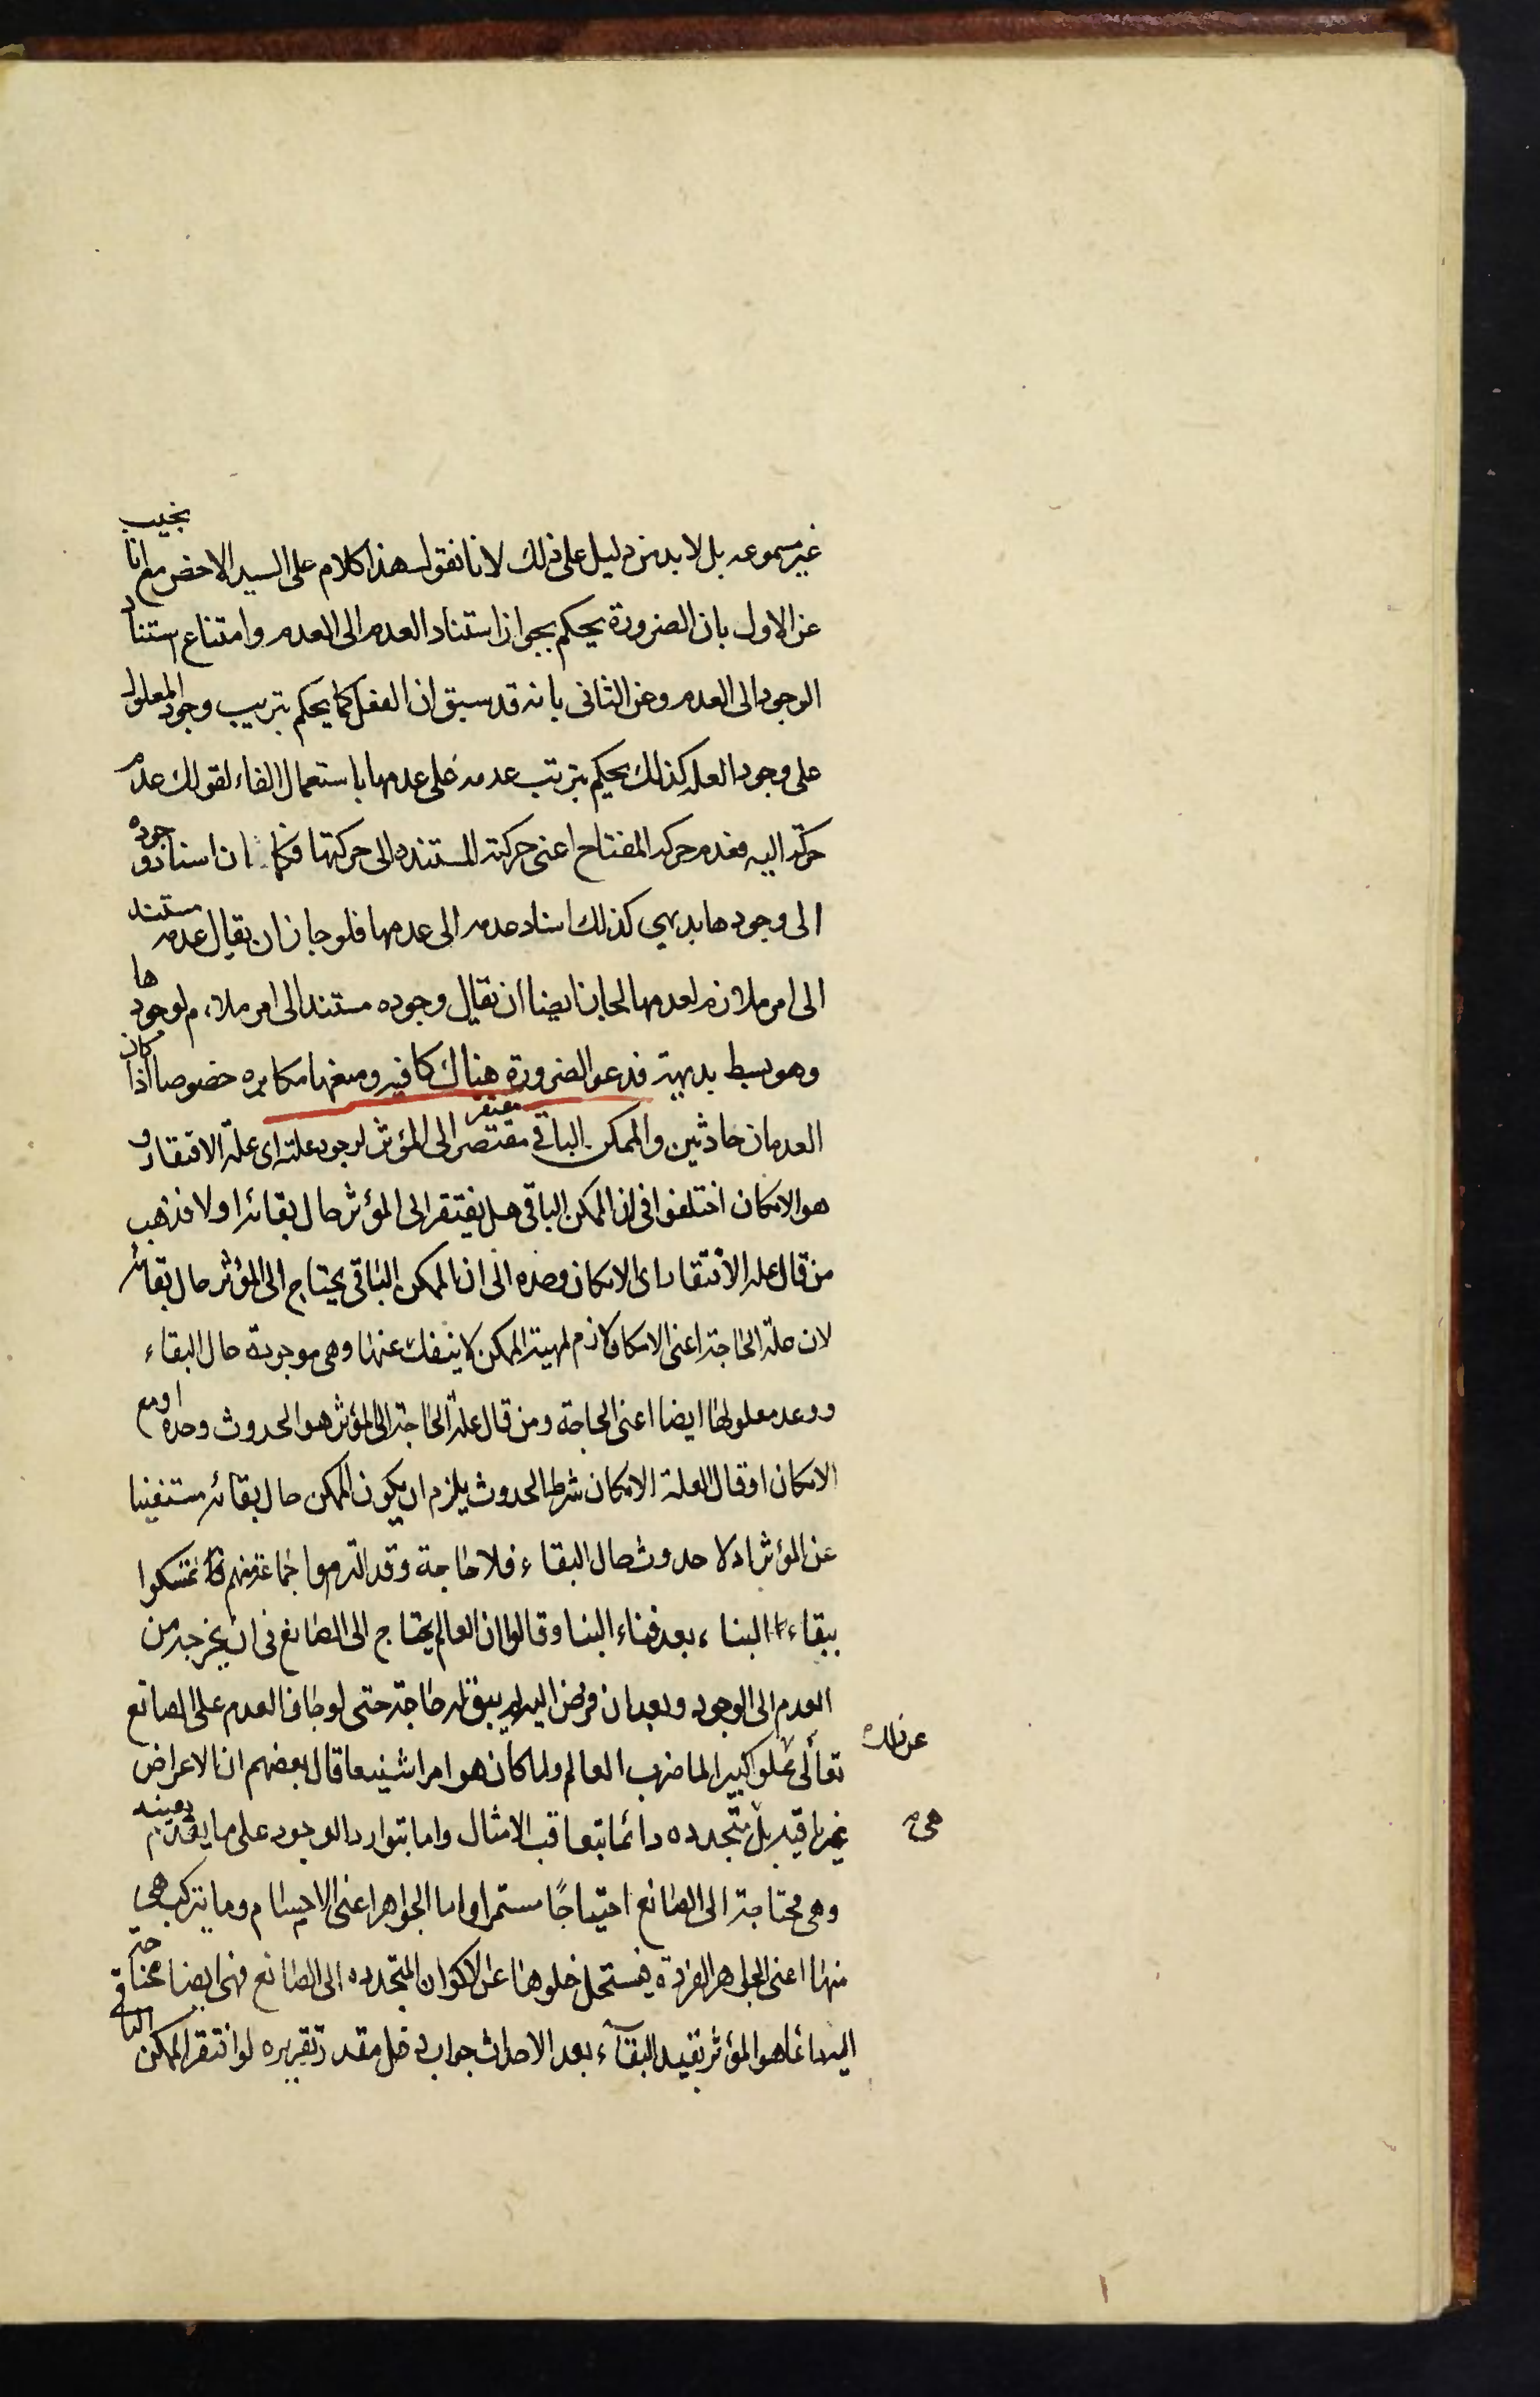 غير مسموعه بل لا بد من دليل على ذلك لانا نقول هذا كلام على السند الاخص مع انا نجيب
عن الاول بان الضرورة يحكم بجواز استناد العدم الى العدم وامتناع استناد
الوجود الى العدم وعن الثانى بانه قد سبق ان العقل كما يحكم بترتيب وجود المعلول
على وجود العله كذلك يحكم بترتب عدمه على عدمها باستعمال الفاء لقولك عدم
حركة اليد فعدم حركة المفتاح اعنى حركته المستنده الى حركتها فكما ان اسناد وجوده
الى وجودها بديهي كذلك اسناد عدمه الى عدمها فلو جاز ان يقال عدمه مستند
الى امر ملازم لعدمها لجاز ايضا ان يقال وجوده مستند الى امر ملازم لوجودها
وهو بسط بديهية فدعو الضرورة هناك كافيه ومنعها مكابره خصوصا اذا كان
العدمان حادثين والممكن الباقي مفتقر الى المؤثر لوجود علته اى علة الافتقار و
هو الامكان اختلفوا فى ان الممكن الباقى هل يفتقر الى المؤثر حال بقائه او لا فذهب
من قال علة الافتقار اى الامكان وحده الى ان الممكن الباقى يحتاج الى المؤثر حال بقائه
لان علة الحاجة اعنى الامكان لازم لمهية الممكن لا ينفك عنها وهى موجودة حال البقاء
ووعد معلولها ايضا اعنى الحاجة ومن قال علة الحاجة الى المؤثر هو الحدوث وحده او مع
الامكان او قال العلة الامكان شرط الحدوث يلزم ان يكون الممكن حال بقائه مستغنيا
عن المؤثر اذ لا حدوث حال البقاء فلا حاجة وقد التزموا جماعة منهم تمسكوا
ببقاء البناء بعد فناء البنا وقالوا ان العالم يحتاج الى الصانع فى ان يخرجه من
العدم الى الوجود وبعد ان خرج اليه لم يبق له حاجة حتى لو جاز العدم على الصانع
تعالى علوا كبيرا لما ضرب العالم ولما كان هو امرا شنيعا قال بعضهم ان الاعراض
عن ذلك
غير باقيه بل متجدده دائما بتعاقب الامثال واما بتوارد الوجود على ما يعدم بعينه
هى
وهى محتاجة الى الصانع احتياجًا مستمرا واما الجواهر اعنى الاجسام وما يتركب هى
منها اعنى الجواهر الفردة فيستحل خلوها عن الاكوان المتجدده الى الصانع فهى ايضا محتاجة
اليه دائما هو المؤثر يفيد البقاء بعد الاحداث جواب دخل مقدر تقريره لو افتقر الممكن الباقى